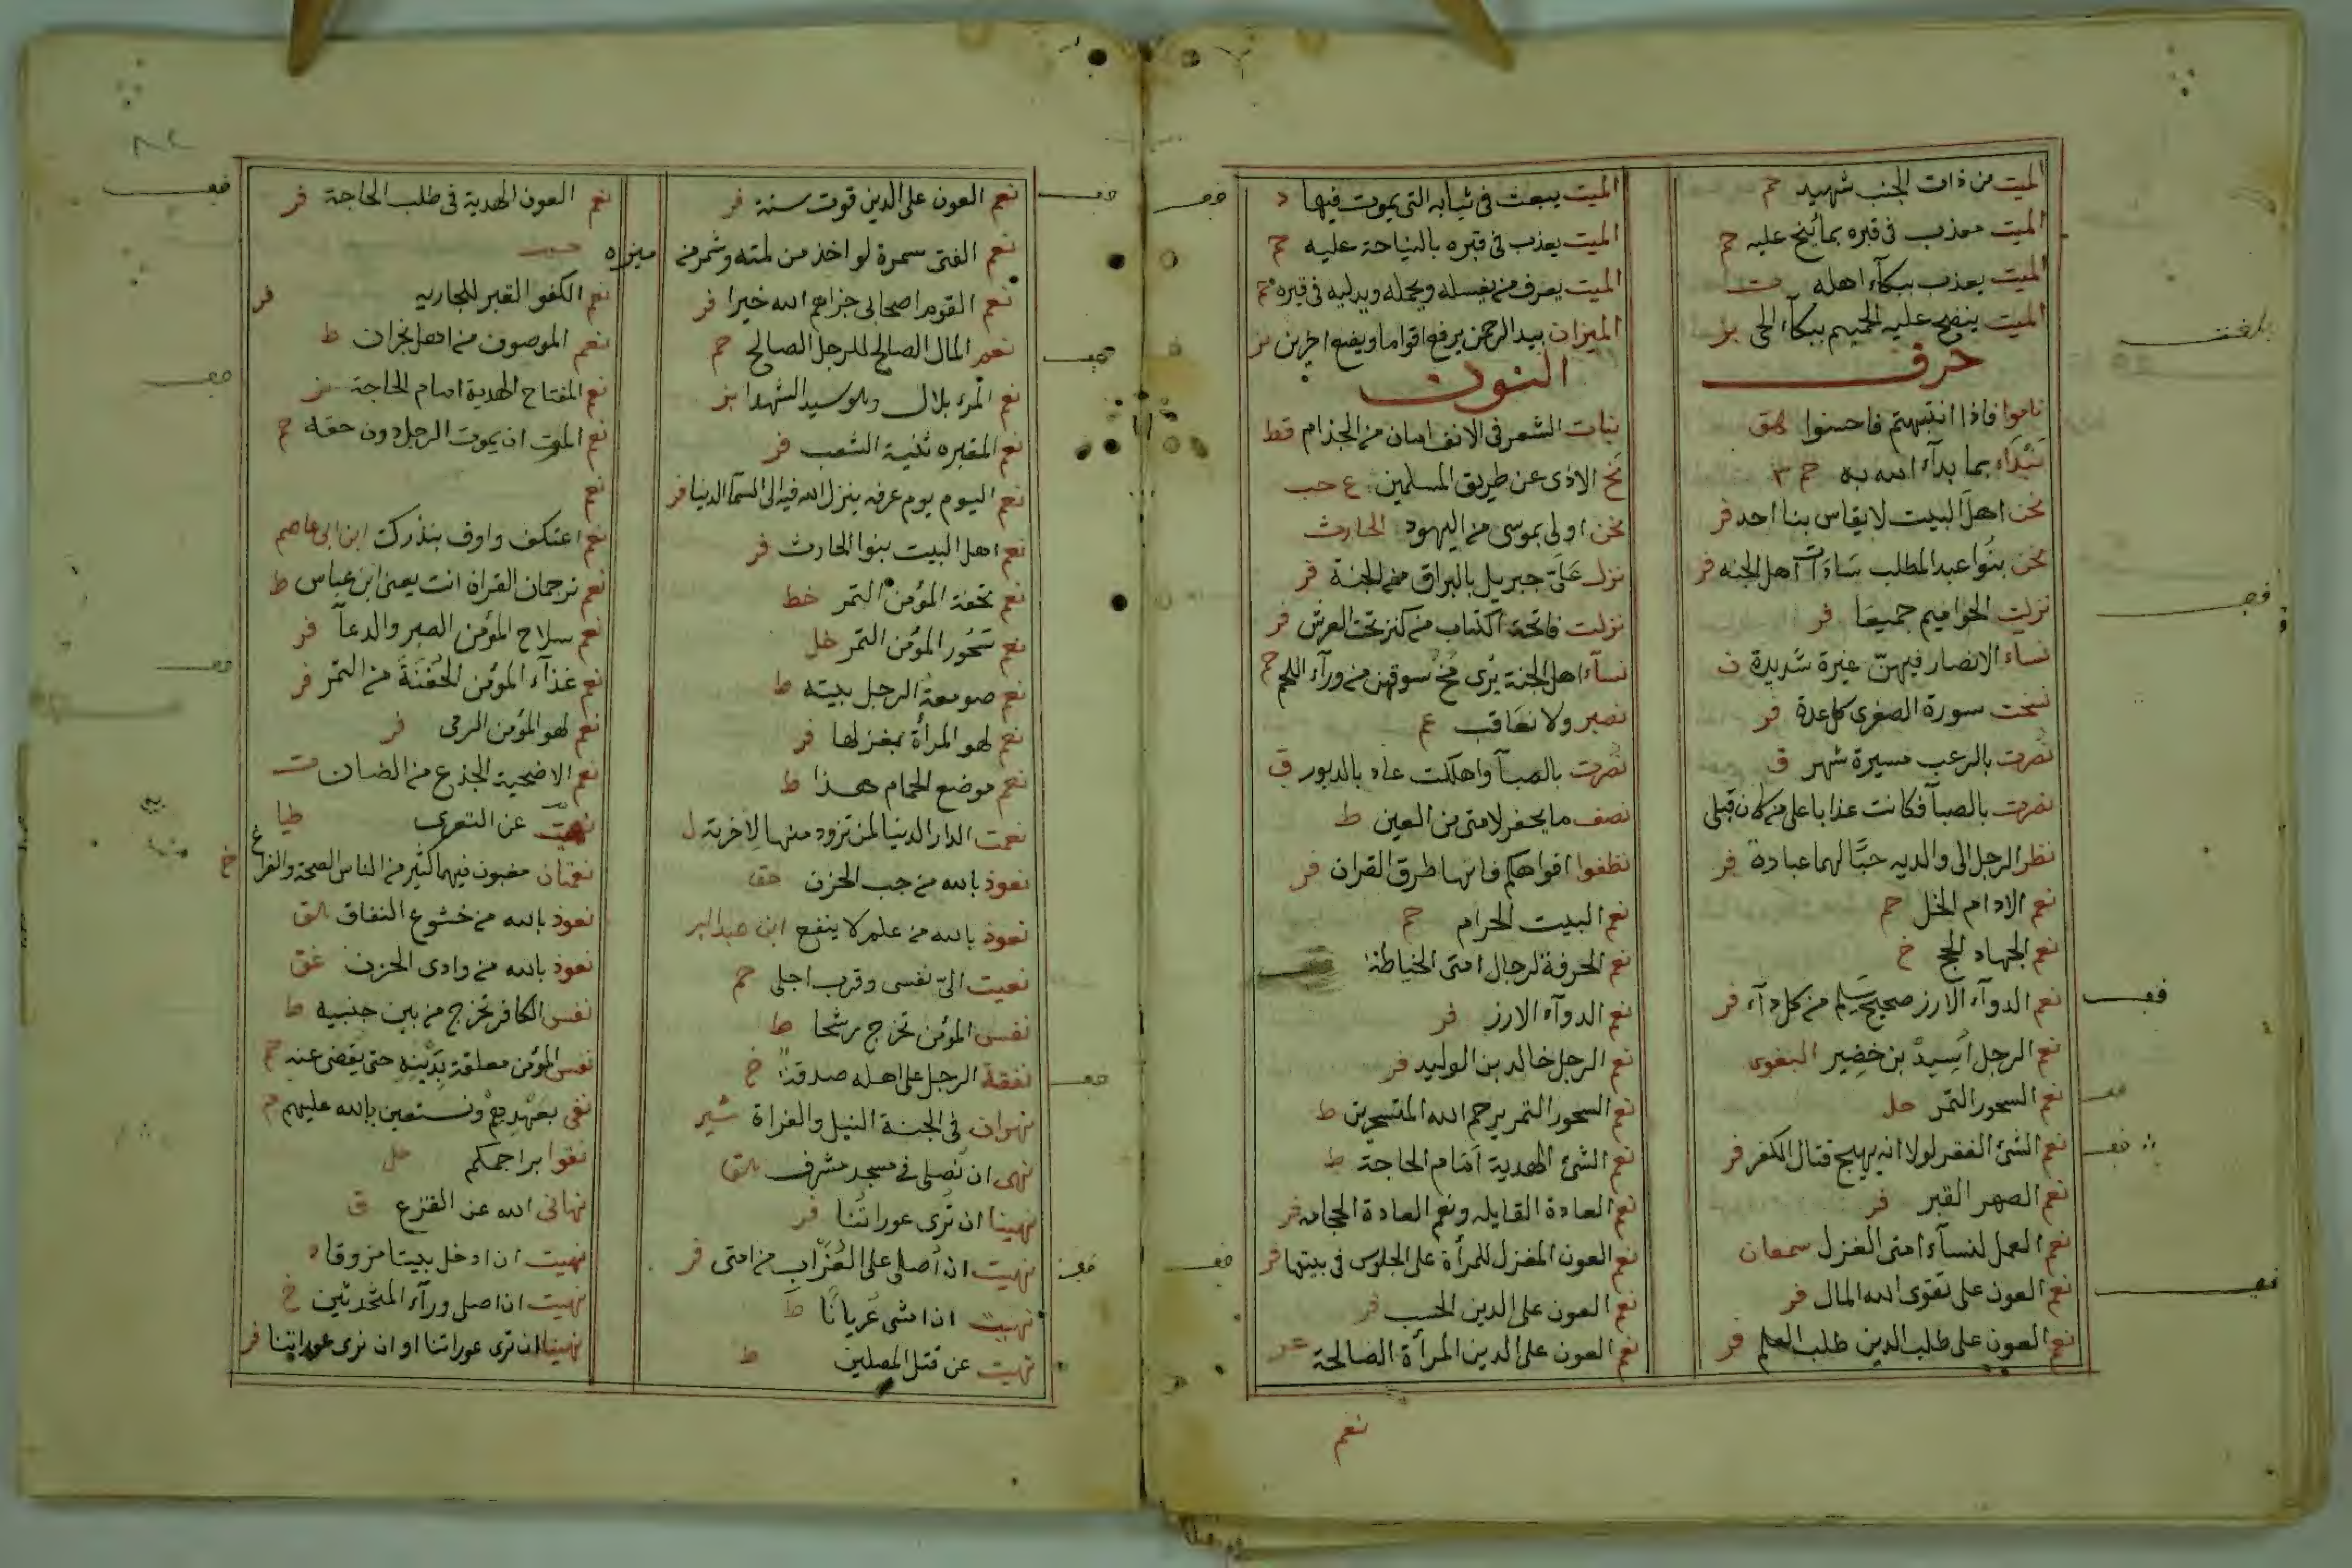 الميت من ذات الجنب شهيد حم
الميت معذب في قبره بما نيح عليه حم
الميت يعذب ببكآء اهله ت
الميت ينضح عليه الحميم ببكآ الحي بز
حرف
ناموا فاذا انتبهتم فاحسنوا هق
نبدآء بما بدآء الله به حم ٣
نحن اهل البيت لا يقاس بنا احد فر
نحن بنوا عبد المطلب سادات اهل الجنه فر
نزلت الحواميم جميعا فر
نساء الانصار فيهن غيرة شديدة ن
نسخت سورة الصغرى كل عدة فر
نصرت بالرعب مسيرة شهر ق
نصرت بالصبآ فكانت عذابا على من كان قبلي
نظر الرجل الى والديه حبا لهما عبادة فر
نعم الادام الخل حم
نعم الجهاد الحج خ
نعم الدوآء الارز صحيح سليم من كل دآء فر
نعم الرجل اسيد بن خضير البغوى
نعم السحور التمر حل
نعم الشئ الفقر لولا انه يهيج قتال الكفر فر
نعم الصهر القبر فر
نعم العمل لنسآء امتى الغزل سمعان
نعم العون على تقوى الله المال فر
نعم العون على طلب الدين طلب العلم فر
الميت يبعث في ثيابه التى يموت فيها د
الميت يعذب في قبره بالنياحة عليه حم
الميت يعرف من يغسله ويحمله ويدليه في قبره حم
الميزان بيد الرحمن يرفع اقواما ويضع اخرين بز
النون
نبات الشعر في الانف امان من الجذام قط
نح الاذى عن طريق المسلمين ع حب
نحن اولى بموسى من اليهود الحارث
نزل على جبريل بالبراق من الجنة فر
نزلت فاتحة الكتاب من كنز تحت العرش فر
نسآء اهل الجنة يرى مخ سوقهن من ورآء اللحم حم
نصبر ولا نعاقب عم
نصرت بالصبآ واهلكت عاد بالدبور ق
نصف ما يحفر لامتى من العين ط
نظفوا افواهكم فانها طرق القران فر
نعم البيت الحرام حم
نعم الحرفة لرجال امتى الخياطة
نعم الدوآء الارز فر
نعم الرجل خالد بن الوليد فر
نعم السحور التمر يرحم الله المتسحرين ط
نعم الشئ الهدية امام الحاجة ط
نعم العادة القايله ونعم العادة الحجامه فر
نعم العون المغزل للمرأة على الجلوس في بيتها فر
نعم العون على الدين الحب فر
نعم العون على الدين المرأة الصالحة
نعم
نعم العون على الدين قوت سنة فر
نعم الفتى سمرة لو اخذ من لمته وشمر من ميزره
نعم القوم اصحابى جزاهم الله خيرا فر
نعم المال الصالح للرجل الصالح حم
نعم المرء بلال وهو سيد الشهدا بز
نعم المقبره ثنية الشعب فر
نعم اليوم يوم عرفه ينزل الله فيه الى السمآ الدنيا فر
نعم اهل البيت بنوا الحارث فر
نعم تحفة المؤمن التمر خط
نعم سحور المؤمن التمر حل
نعم صومعة الرجل بيته ط
نعم لهو المرأة بمغزلها فر
نعم موضع الحمام هذا ط
نعمت الدار الدنيا لمن تزود منها لاخرته ل
نعوذ بالله من جب الحزن
نعوذ بالله من علم لا ينفع ابن عبد البر
نعيت الىّ نفسى وقرب اجلى حم
نفس المؤمن تخرج رشحا ط
نفقة الرجل على اهله صدقة خ
نهران في الجنة النيل والفراة شير
نهى ان نصلى في مسجد مشرف
نهينا ان ترى عوراتنا فر
نهيت ان اصلى على العزاب من امتى فر
نهيت ان امشى عريانا ط
نهيت عن قتل المصلين ط
نعم العون الهدية في طلب الحاجة فر
نعم الكفو القبر للجاريه فر
نعم الموصوف من اهل نجران ط
نعم المفتاح الهدية امام الحاجة
نعم الموت ان يموت الرجل دون حقه حم
نعم
نعم اعتكف واوف بنذرك ابن ابى عاصم
نعم ترجمان القران انت يعنى ابن عباس ط
نعم سلاح المؤمن الصبر والدعآ فر
نعم غذآء المؤمن الحفنة من التمر فر
نعم لهو المؤمن الرمى فر
نعم الاضحية الجذع من الضان ت
نهيت عن التعرى طيا
نعمتان مغبون فيهما كثير من الناس الصحة والفراغ خ
نعوذ بالله من خشوع النفاق
نعوذ بالله من وادى الحزن عق
نفس الكافر تخرج من بين جنبيه ط
نفس المؤمن معلقة بدينه حتى يقضى عنه حم
نفى بعهدهم ونستعين بالله عليهم م
نقوا براجمكم حل
نهانى الله عن القزع ق
نهيت ان ادخل بيتا مزوقا د
نهيت ان اصلى ورآء المتحدثين خ
نهينا ان ترى عوراتنا او ان نرى عوراتنا فر